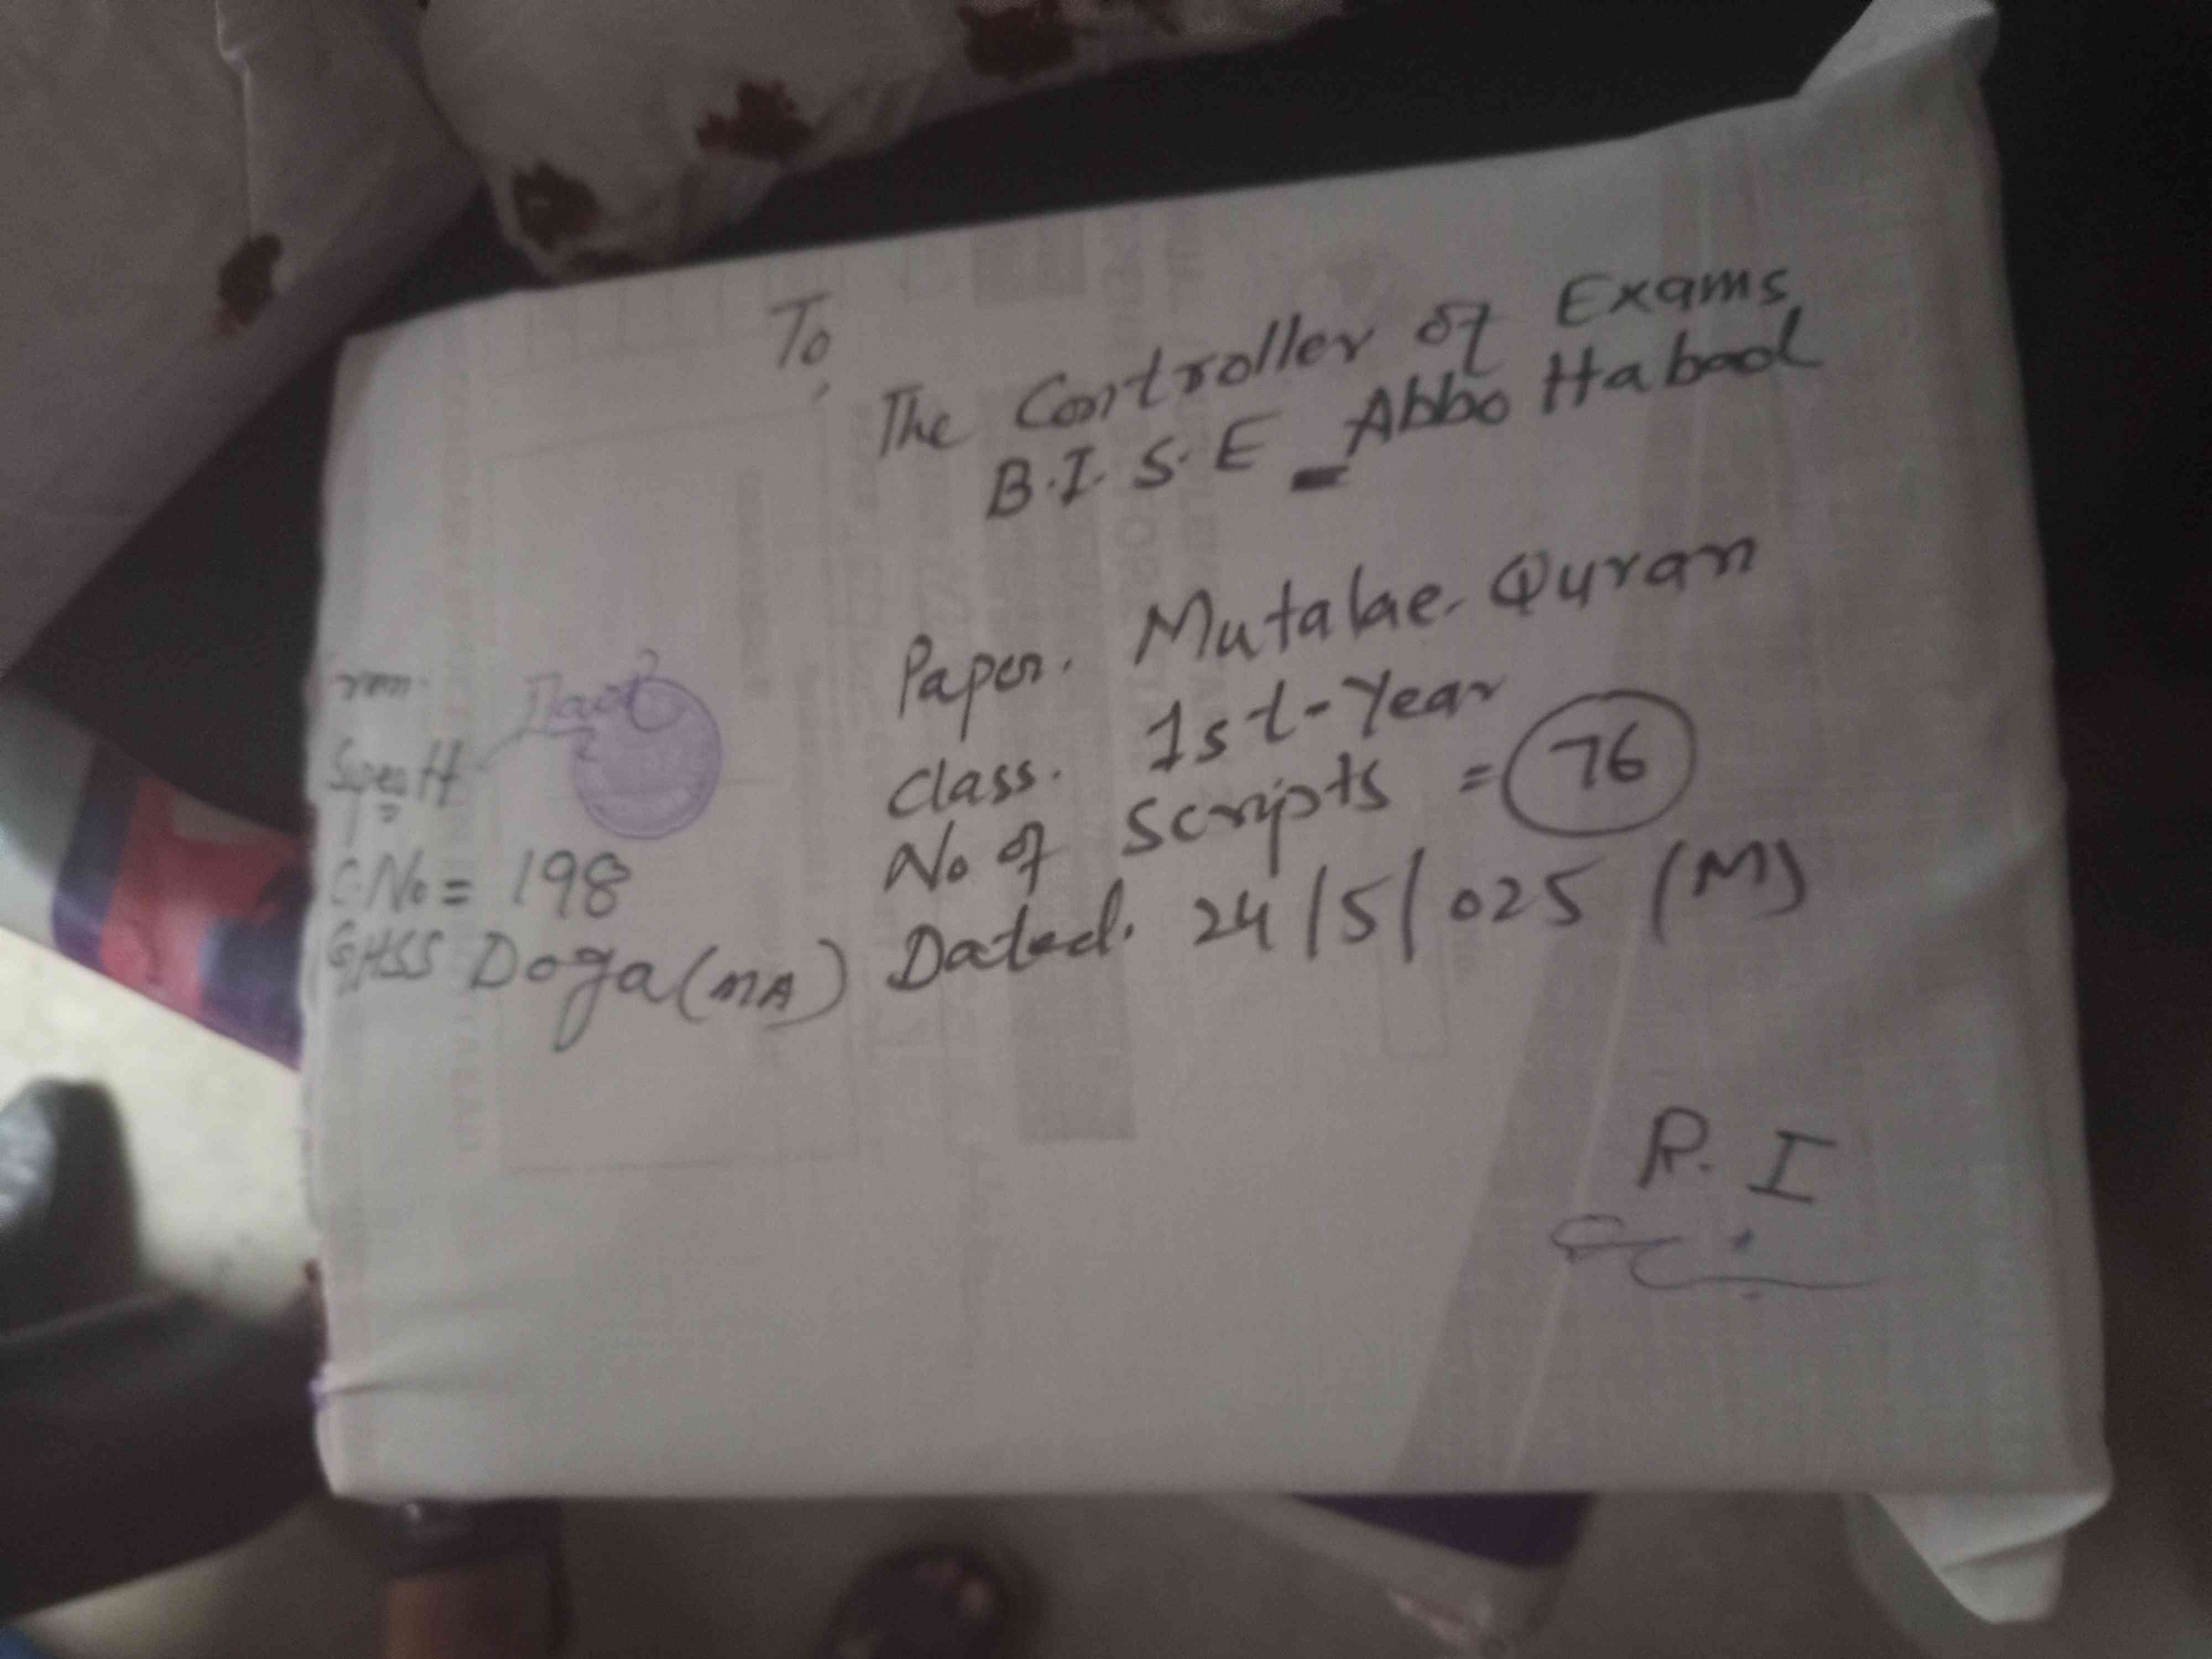 To,
The Controller of Exams,
B.I.S.E - Abbottabad
Paper. Mutalae. Quran
Class. 1st-Year
No of Scripts = 76
Dated. 24/5/025 (M)
Supdtt
C.No = 198
GHSS Doga (MA)
R.I